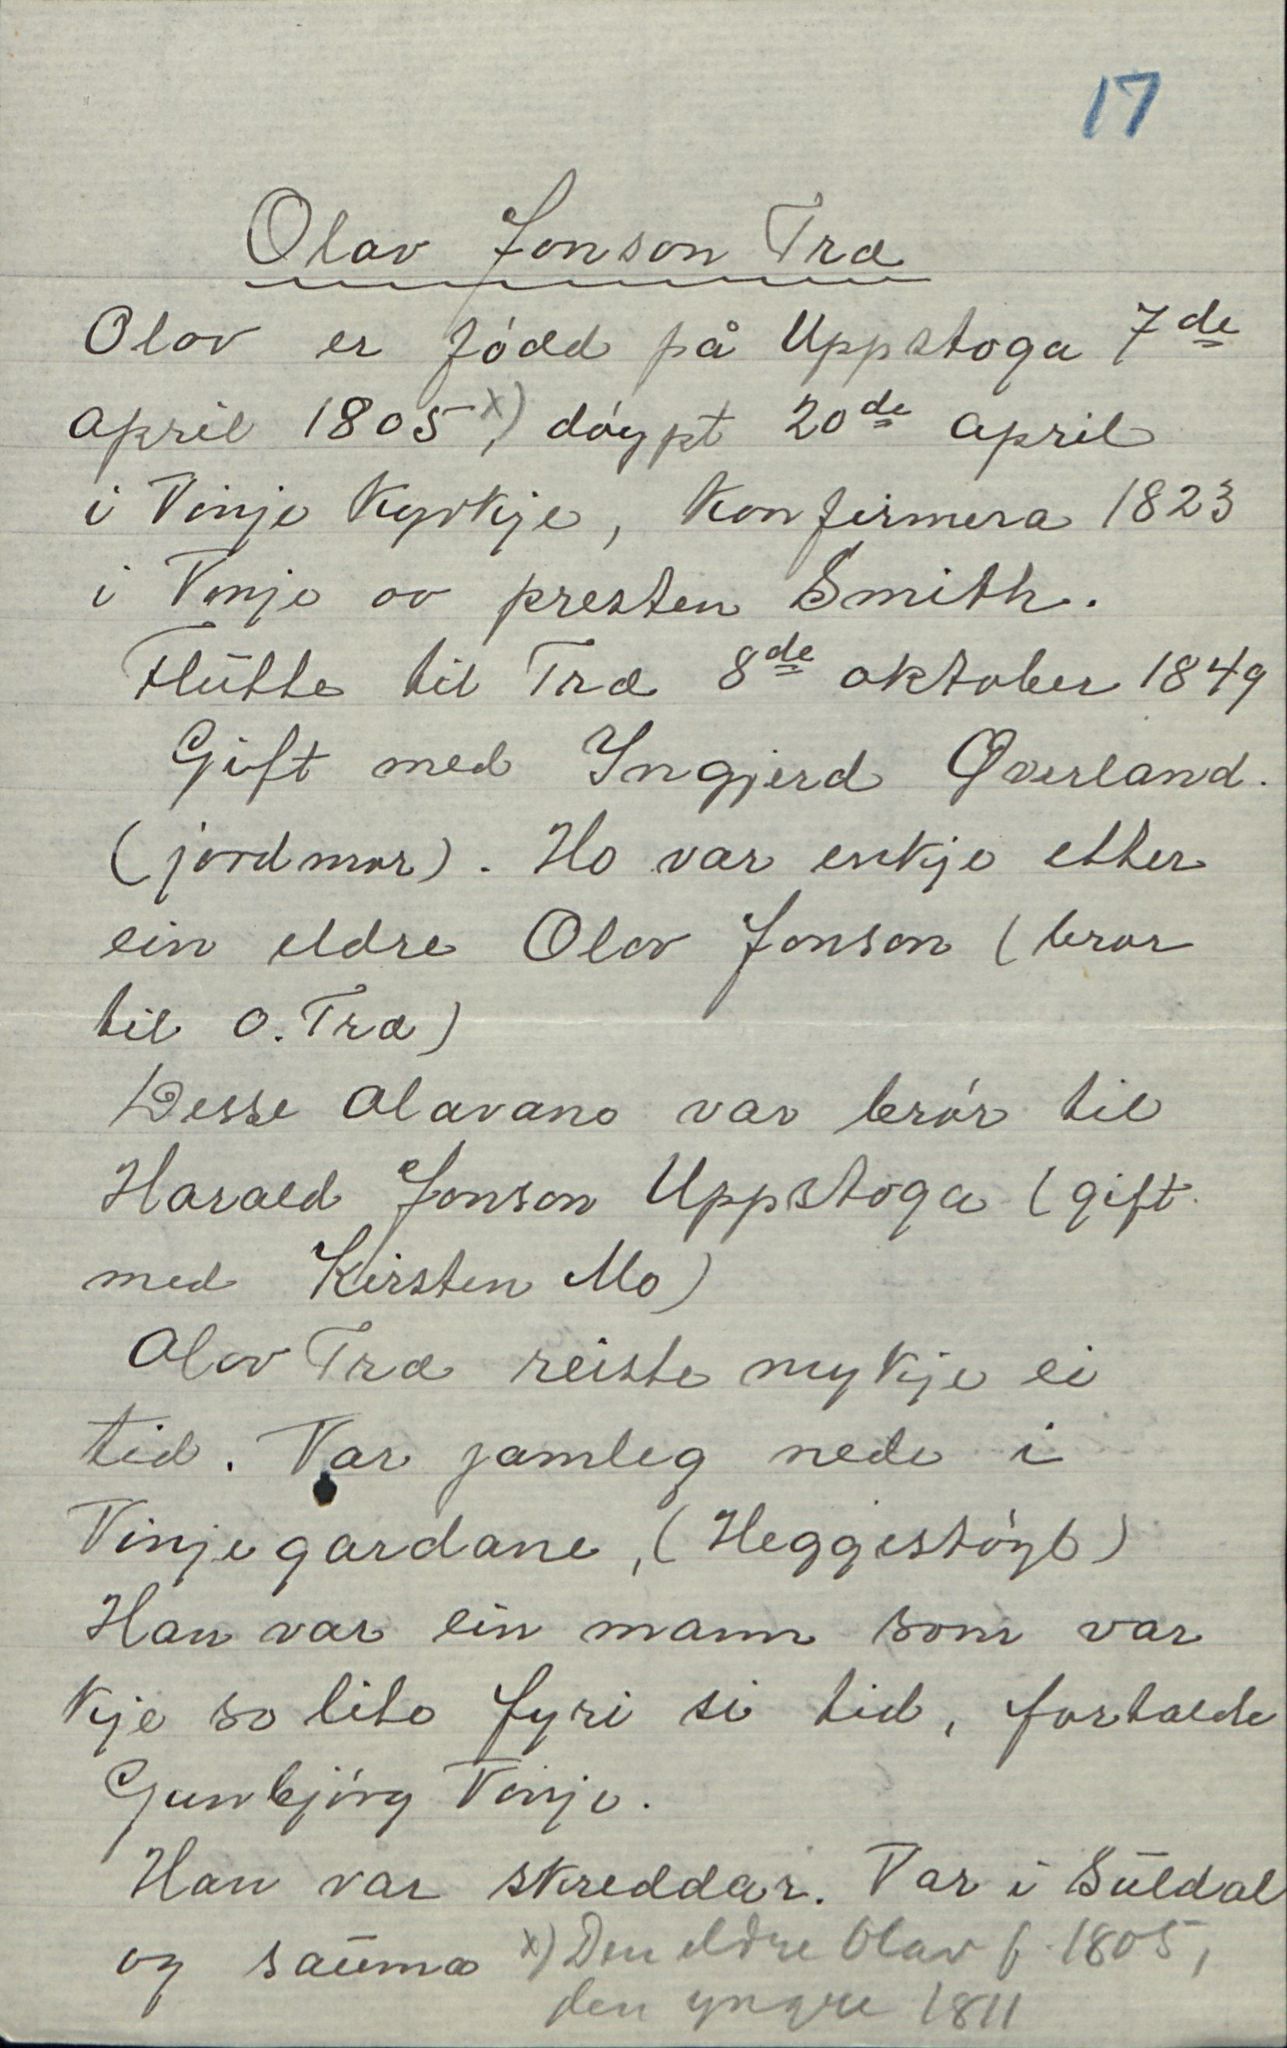 17
Olav Jonson Træ
Olav er fødd på Uppstoga 7de
april 1805x), døypt 20de april
i Vinje Kyrkje, Konfirmera 1823
i Vinje av presten Smith.
Flutte til Træ 8de oktober 1849
Gift med Yngjerd Øverland.
(jordmor). Ho var enkje etter
ein eldre Olav Jonson (bror
til O. Træ)
Desse Olavane var brør til
Harald Jonson Uppstoga (gift
med Kirsten Mo)
Olav Træ reiste mykje ei
tid. Var jamleg nede i
Vinjegardane, (Heggestøyl)
Han var ein mann som var
kje so lite fyri si tid, fortalde
Gunbjørg Vinje.
Han var skreddar. Var i Suldal
og sauma
x) Den eldre Olav f. 1805,
den yngre 1811